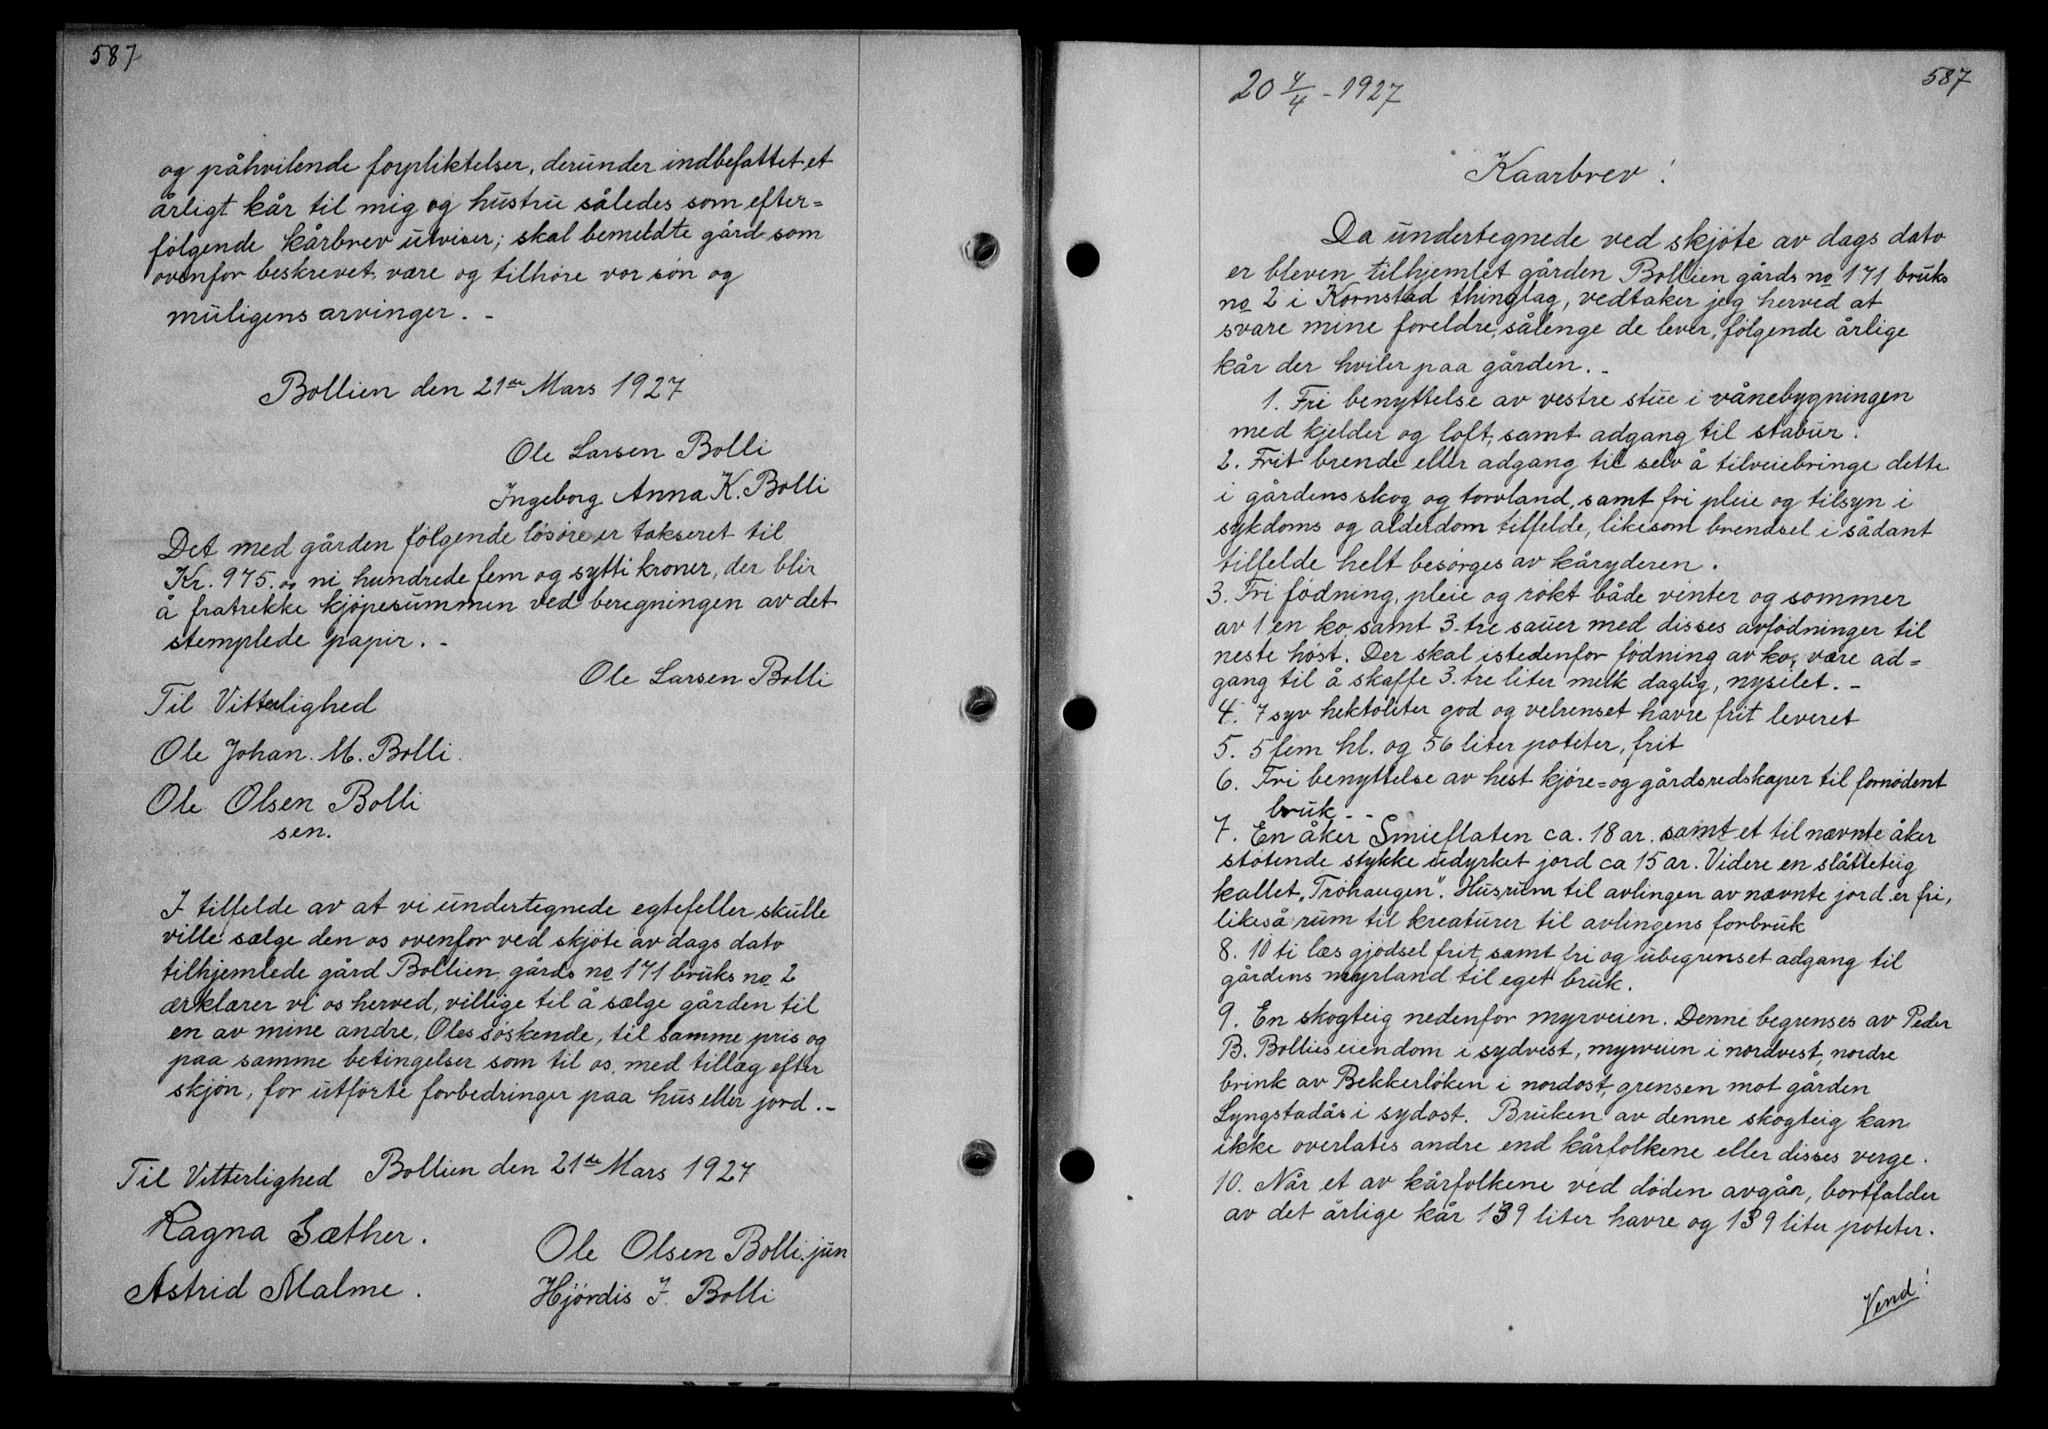 587
og påhvilende forpliktelser, derunder indbefattet et
årligt kår til mig og hustru således som efter=
følgende kårbrev utviser; skal bemeldte gård som
ovenfor beskrevet, være og tilhøre vor søn og
muligens arvinger. -
Bollien den 21de Mars 1927
Ole Larsen Bolli
Ingeborg Anna K. Bolli
Det med gården følgende løsøre er takseret til
Kr. 975.00 ni hundrede fem og sytti kroner, der blir
å fratrekke kjøpesummen ved beregningen av det
stemplede papir. -
Ole Larsen Bolli
Til Vitterlighed
Ole Johan. M. Bolli.
Ole Olsen Bolli
sen.
I tilfelde av at vi undertegnede egtefeller skulle
ville sælge den os ovenfor ved skjøte av dags dato
tilhjemlede gård Bollien, gårds no 171 bruks no 2
ærklærer vi os herved, villige til å sælge gården til
en av mine andre, Oles søskende, til samme pris og
paa samme betingelser som til os, med tillæg efter
skjøn, for utførte forbedringer paa hus eller jord. -
Til Vitterlighed Bollien den 21de Mars 1927
Ragna Sæther.
Ole Olsen Bolli. jun
Astrid Malme.
Hjørdis J. Bolli
587
20 4/4 - 1927
Kaarbrev!
Da undertegnede ved skjøte av dags dato
er bleven tilhjemlet gården Bollien gårds no 171 bruks
no 2 i Kornstad thinglag, vedtaker jeg herved at
svare mine foreldre, sålenge de lever, følgende årlige
kår der hviler paa gården. -
1. Fri benyttelse av vestre stue i vånebygningen
med kjelder og loft, samt adgang til stabur.
2. Frit brende eller adgang til selv å tilveiebringe dette
i gårdens skog og torvland, samt fri pleie og tilsyn i
sykdoms og alderdom tilfelde, likesom brendsel i sådant
tilfelde helt besørges av kåryderen.
3. Fri fødning, pleie og røkt både vinter og sommer
av 1 en ko samt 3 - tre sauer med disses avfødninger til
neste høst. Der skal istedenfor fødning av ko, være ad=
gang til å skaffe 3. tre liter melk daglig, nysilet. -
4. 7 syv hektoliter god og velrenset havre frit leveret
5. 5 fem hl. og 56 liter poteter, frit
6. Fri benyttelse av hest kjøre= og gårdsredskaper til fornødent
bruk - -
7. En åker Smieflaten ca. 18 ar. samt et til nævnte åker
støtende stykke udyrket jord ca 15 ar. Videre en slåtteteig
kallet „Trøhaugen". Husrum til avlingen av nævnte jord er fri,
likeså rum til kreaturer til avlingens forbruk
8. 10 ti læs gjødsel frit, samt fri og ubegrenset adgang til
gårdens myrland til eget bruk.
9. En skogteig nedenfor myrveien. Denne begrenses av Peder
B. Bollies eiendom i sydvest, myrveien i nordvest, nordre
brink av Bekkerløken i nordost, grensen mot gården
Lyngstadås i sydost. Bruken av denne skogteig kan
ikke overlates andre end kårfolkene eller disses verge.
10. Når et av kårfolkene ved døden avgår, bortfalder
av det årlige kår 139 liter havre og 139 liter poteter.
Vend!